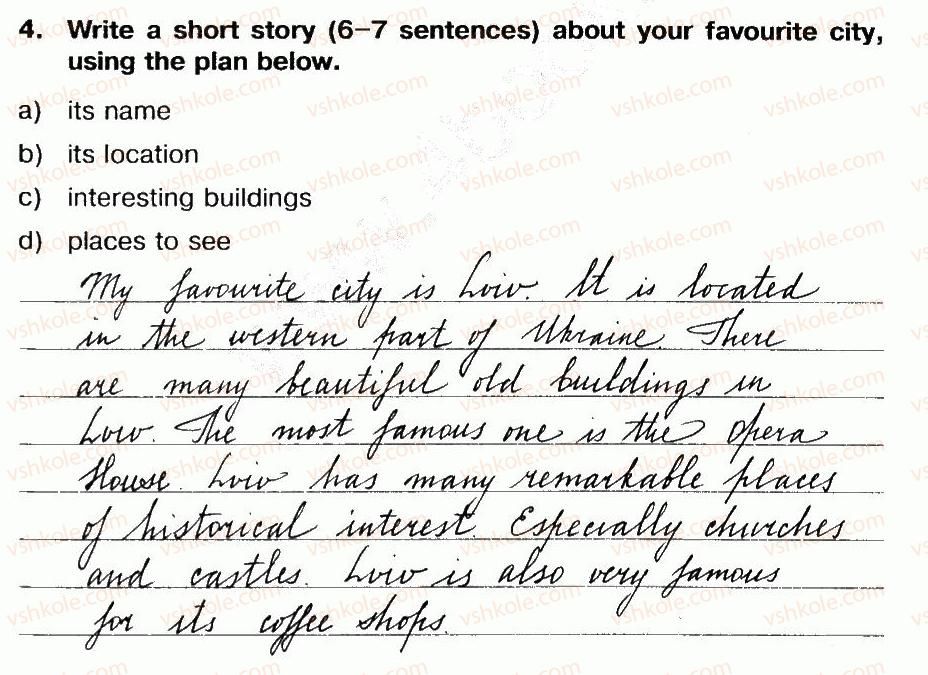 4. Write a short story (6–7 sentences) about your favourite city,
using the plan below.
a) its name
b) its location
c) interesting buildings
d) places to see
My favourite city is Lviv. It is located
in the western part of Ukraine. There
are many beautiful old buildings in
Lviv. The most famous one is the Opera
House. Lviv has many remarkable places
of historical interest. Especially churches
and castles. Lviv is also very famous
for its coffee shops.